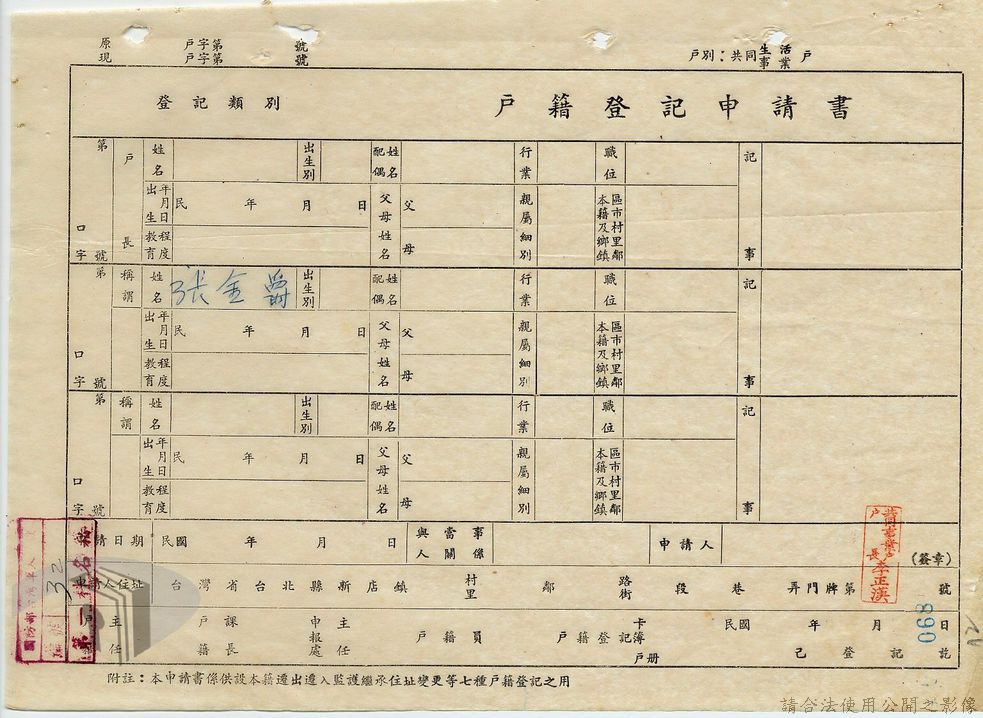 原 戶字第 號
現 戶字第 號
戶別：共同生活戶
事業
登記類別 戶籍登記申請書
第 口 字 號 戶長 姓名 出生別 配偶姓名 行業 職位 記事
出生年月日 民 年 月 日 父母姓名 父 母 親屬細別 本籍及鄉鎮區市村里鄰
教育程度
第 口 字 號 稱謂 姓名 張金爵 出生別 配偶姓名 行業 職位 記事
出生年月日 民 年 月 日 父母姓名 父 母 親屬細別 本籍及鄉鎮區市村里鄰
教育程度
第 口 字 號 稱謂 姓名 出生別 配偶姓名 行業 職位 記事
出生年月日 民 年 月 日 父母姓名 父 母 親屬細別 本籍及鄉鎮區市村里鄰
教育程度
請日期 民國 年 月 日 與當事人關係 申請人 (簽章)
共同事業戶
戶長李正漢
申請人住址 台灣省台北縣新店鎮 村里 鄰 路街 段 巷 弄門牌第 號
戶籍主任 戶籍課長 申報處主任 戶籍員 戶籍登記卡簿 民國 年 月 日
戶册 己登記訖
國防部
32
第一
068
附註：本申請書係供設本籍遷出遷入監護繼承住址變更等七種戶籍登記之用
請合法使用公開之影像